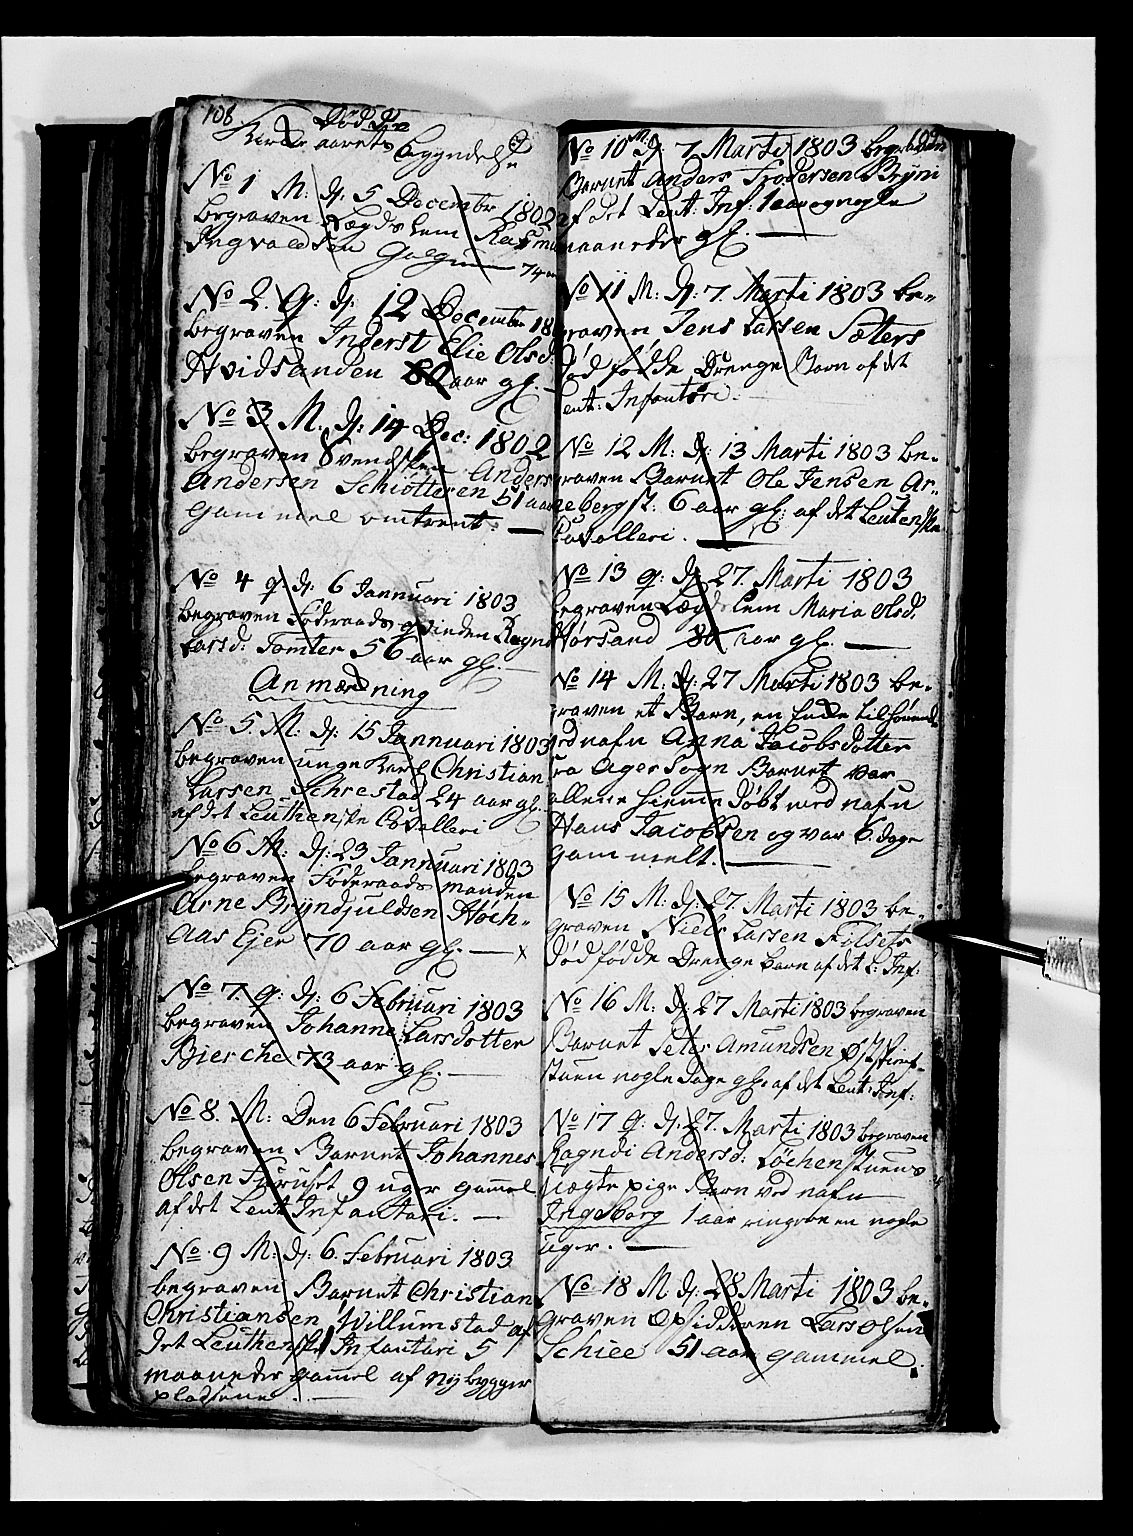 108.
Døde
Kirke aarets begyndelse
No 1 M: d: 5 Decembr 1802
begraven Lægdslem Rasmu
Ingvaldsen 74
No 2. Q: d: 12 December 18
begraven Inderst Elie Olsd:
Hvidsanden 80 aar gl. —
No 3 M. d: 14 Dec: 1802
begraven Svendsken Anders
Andersen Schiötteren 51 aar
gammel omtrent. —
No 4 q. d: 6 Jannuari 1803
begraven Föderaads qvinden Ragn
Larsd: Tomter 56 aar gl. —
Anmærkning
No 5. M. d: 15 Jannuari 1803
begraven unge Karl Christian
Larsen Schrestad 24 aar gl.
af det Leuthenske Cavalleri
No 6 M: d: 23 Jannuari 1803
begraven Föderaads manden
Arne Bryndjuldsen Höch-
Aas Ejer 70 aar gl. — x
No 7. q: d: 6 Februari 1803
begraven Johanne Larsdotter
Bierche 73 aar gl. —
No 8. M: Den 6 Februari 1803
begraven Barnet Johannes
Olsen Furuset 9 uger gamel
af det Leut Infantari. —
No 9 M: d: 6. Februari 1803
begraven Barnet Christian
Christiansen Willumstad af
det Leuthenske Infantari 5
maaneder gamel af nybygger
pladsene. —
109
No 10 M d: 7 Marti 1803 begraven
Barnet Anders Frodersen Bryni
af det Leut: Inf: 1 aar og nogle
maaneder gl. —
No 11 M: d: 7. Marti 1803 be-
graven Jens Larsen Sæters
død fødde Drenge Barn af det
Leut: Infantari.
No 12 M: d: 13 Marti 1803 be-
graven Barnet Ole Jensen Ar-
nebergst: 6 aar gl: af det Leutenske
Cavalleri. —
No 13 q: d: 27. Marti 1803
begraven Lægdslem Maria Olsd:
Hörsand 80 aar gl. —
No 14 M: d: 27 Marti 1803 be-
graven et Barn, en Enke tilhörende
ved nafn Anna Jacobsdotter
fra Ager Sogn Barnet var
allene hiemme döbt ved nafn
Hans Jacobsen og var 6 dage
gammelt. —
No 15 M: d: 27. Marti 1803 be-
graven Niels Larsen Fölsets
dödfödde Drenge barn af det L: Inf:
No 16 M: d: 27 Marti 1803 begraven
Barnet Peter Amundsen
stuen nogle dage gl. af det Leut: Inf:
No 17 q. d: 27. Marti 1803 begraven
Ragndi Andersd: Löchenstuens
ægte pige Barn ved nafn
Ingeborg 1 aar ringere en nogle
uger. —
No 18 M d: 28 Marti 1803 be-
graven Opsidderen Lars Olsen
Schiee 51 aar gammel.